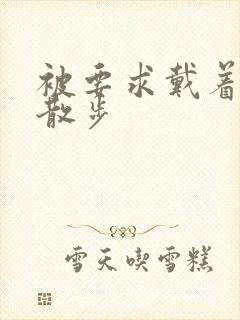 被要求戴着
散步
雪天喫雪糕